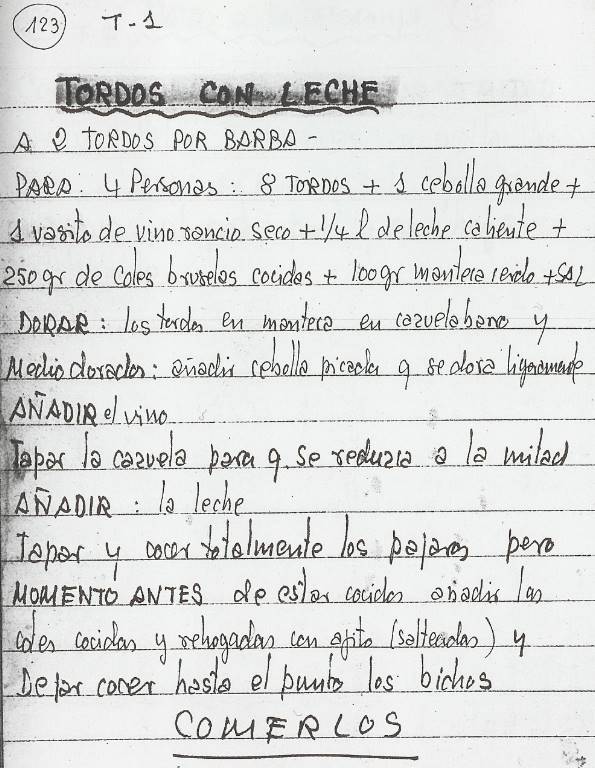 123 T-1
TORDOS CON LECHE
A 2 TORDOS POR BARBA -
PARA: 4 Personas: 8 TORDOS + 1 cebolla grande +
1 vasito de vino rancio seco + 1/4 l de leche caliente +
250 gr de coles bruselas cocidas + 100 gr manteca cerdo + SAL
DORAR: los tordos en manteca en cazuela barro y
Medio dorados: añadir cebolla picada q se dora ligeramente
AÑADIR el vino
Tapar la cazuela para q. se reduzca a la mitad
AÑADIR : la leche
Tapar y cocer totalmente los pajaros pero
MOMENTO ANTES de estar cocidos añadir las
coles cocidas y rehogadas con ajito (salteadas) y
Dejar cocer hasta el punto los bichos
COMERLOS